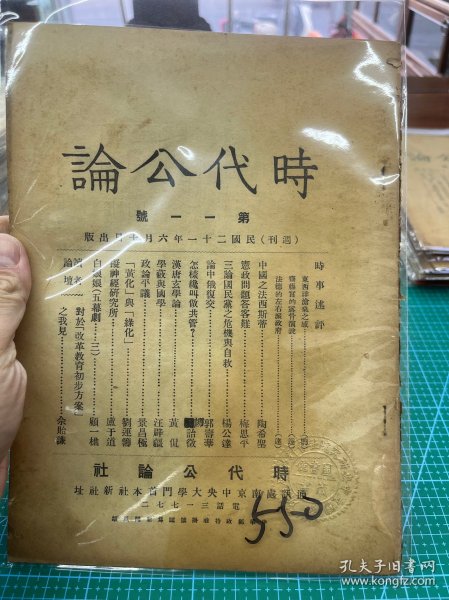 時代公論
第一一號
(週刊)民國二十一年六月十日出版
時事述評
法德的左右派政府
中國之法西斯蒂……陶希聖
憲政問題答客難……梅思平
三論國民黨之危機與自救……楊公達
論中俄復交……郭壽華
怎樣纔叫做共管?……繆諳徵
漢唐玄學論……黃侃
學蔽與國學……汪辟疆
政論平議……景昌極
「黃化」與「綠化」……劉運籌
神經研究所……盧于道
白娘娘(五幕劇)……顧
讀者論壇
對於「改革教育初步方案」之我見……余貽謙
時代公論社
南京中央大學門首本社新社址
電話三一七七二
550
孔夫子旧书网
kongfz.com